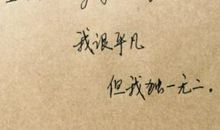 我很平凡
但我独一无二。